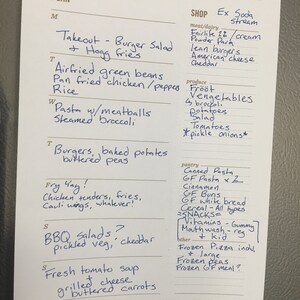 M
Takeout - Burger Salad
+ Hoag fries
T
Airfried green beans
Pan fried chicken/peppers
Rice
W
Pasta w/ meatballs
Steamed broccoli
T
Burgers, baked potatoes
buttered peas
Fry Yay!
Chicken tenders, fries,
Cauli wings, whatever!
S
BBQ Salads?
pickled veg, cheddar
S
Fresh tomato soup
+ grilled cheese
buttered carrots
SHOP
Ex Soda
stream
meat/dairy
Fairlife / cream
Powder Parm
lean burgers
American cheese
cheddar
produce
Froot
Vengetables
broccoli
Potatoes
Salad
Tomatoes
*pickle onions*
pantry
Canned Pasta
GF Pasta x 2
Cinnamon
GF Buns
GF white bread
Cereal - All types
=SNACKS=
Vitamins - Gummy
Mothwash - reg
+ kid
other
Frozen Pizza indv.
+ large
Frozen peas
Frozen GF meal?